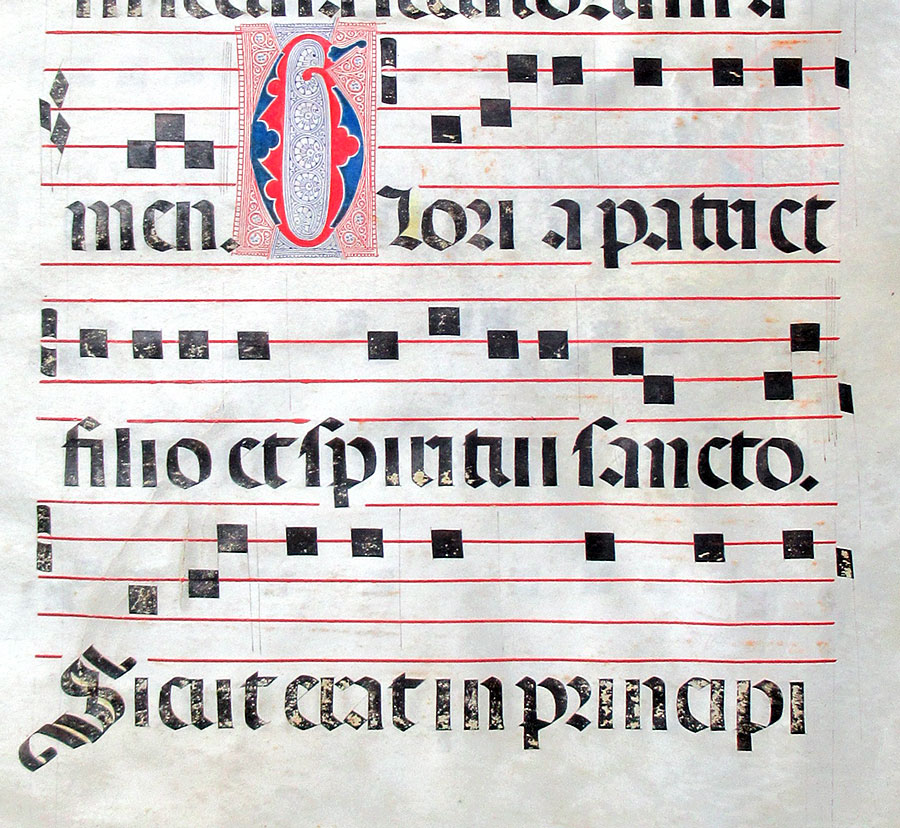 men. Glori a patri et
filio et spiritui sancto.
Sicut erat in principi